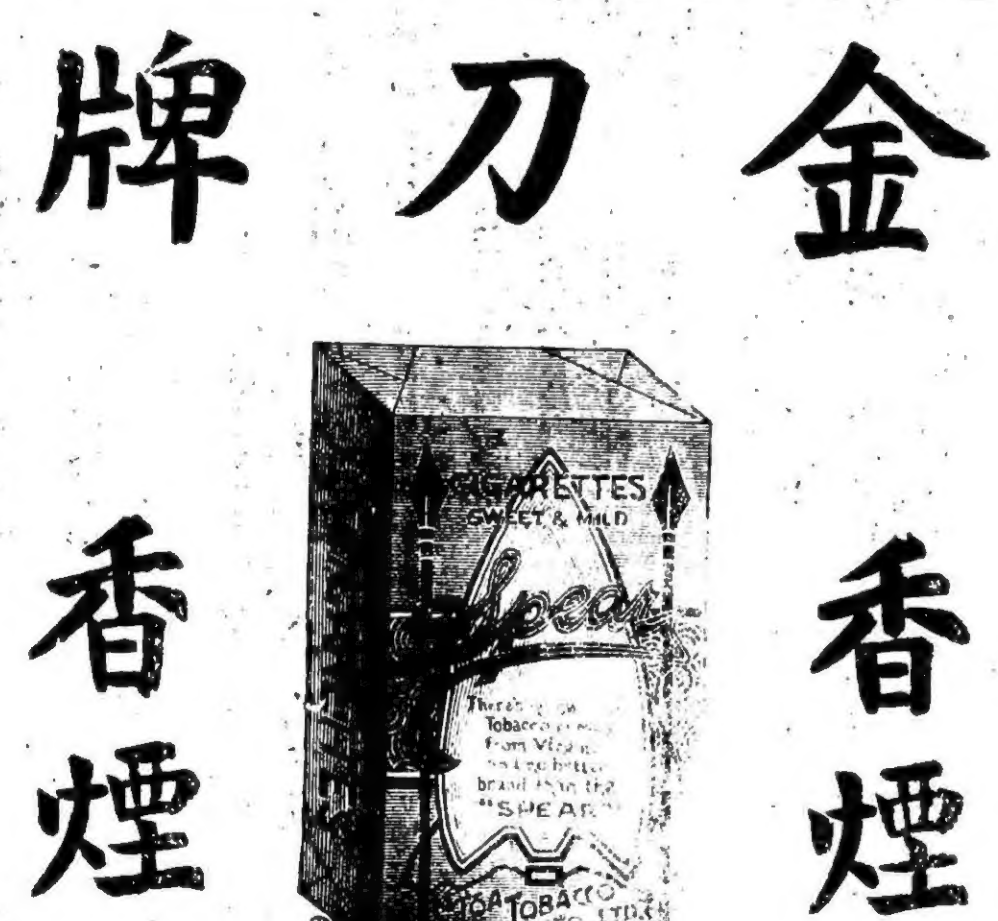 金刀牌
香煙
香煙
CIGARETTES
SWEET & MILD
Spear
Tobacco
from
brand than the
"SPEAR"
TOA TOBACCO
LTD.